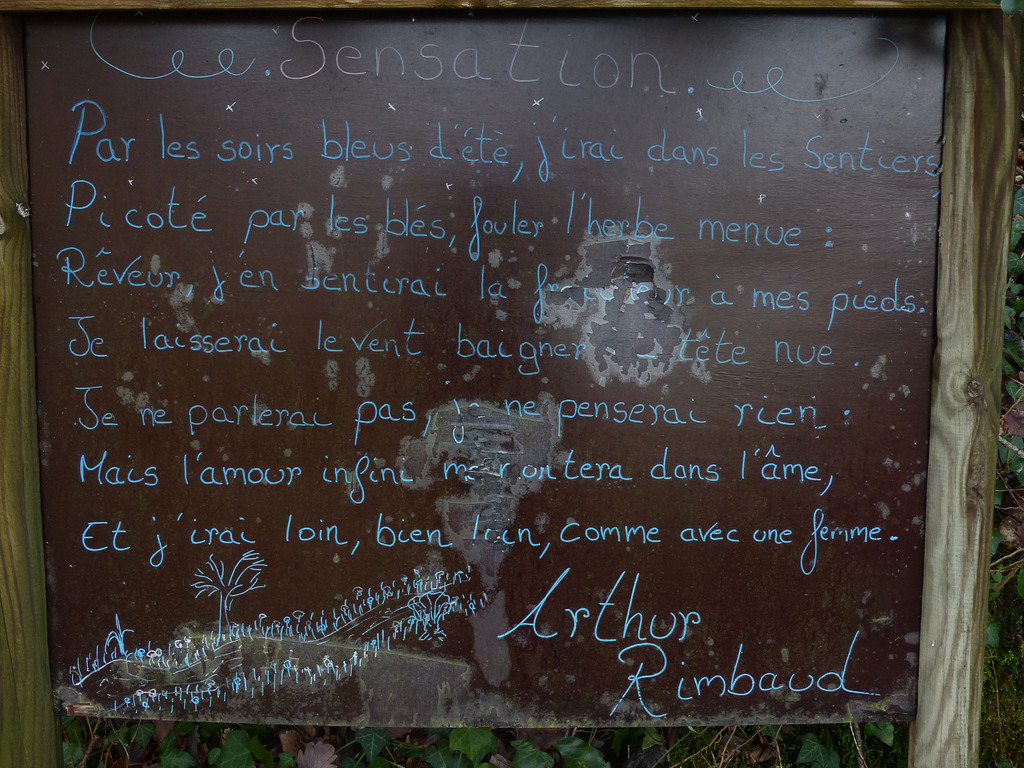 Sensation.
Par les soirs bleus d'étè, j'irai dans les Sentiers,
Picoté par les blés, fouler l'herbe menue :
Rêveur, j'en sentirai la fraîcheur à mes pieds.
Je laisserai le vent baigner tête nue.
Je ne parlerai pas, je ne penserai rien :
Mais l'amour infini me montera dans l'âme,
Et j'irai loin, bien loin, comme avec une femme.
Arthur
Rimbaud